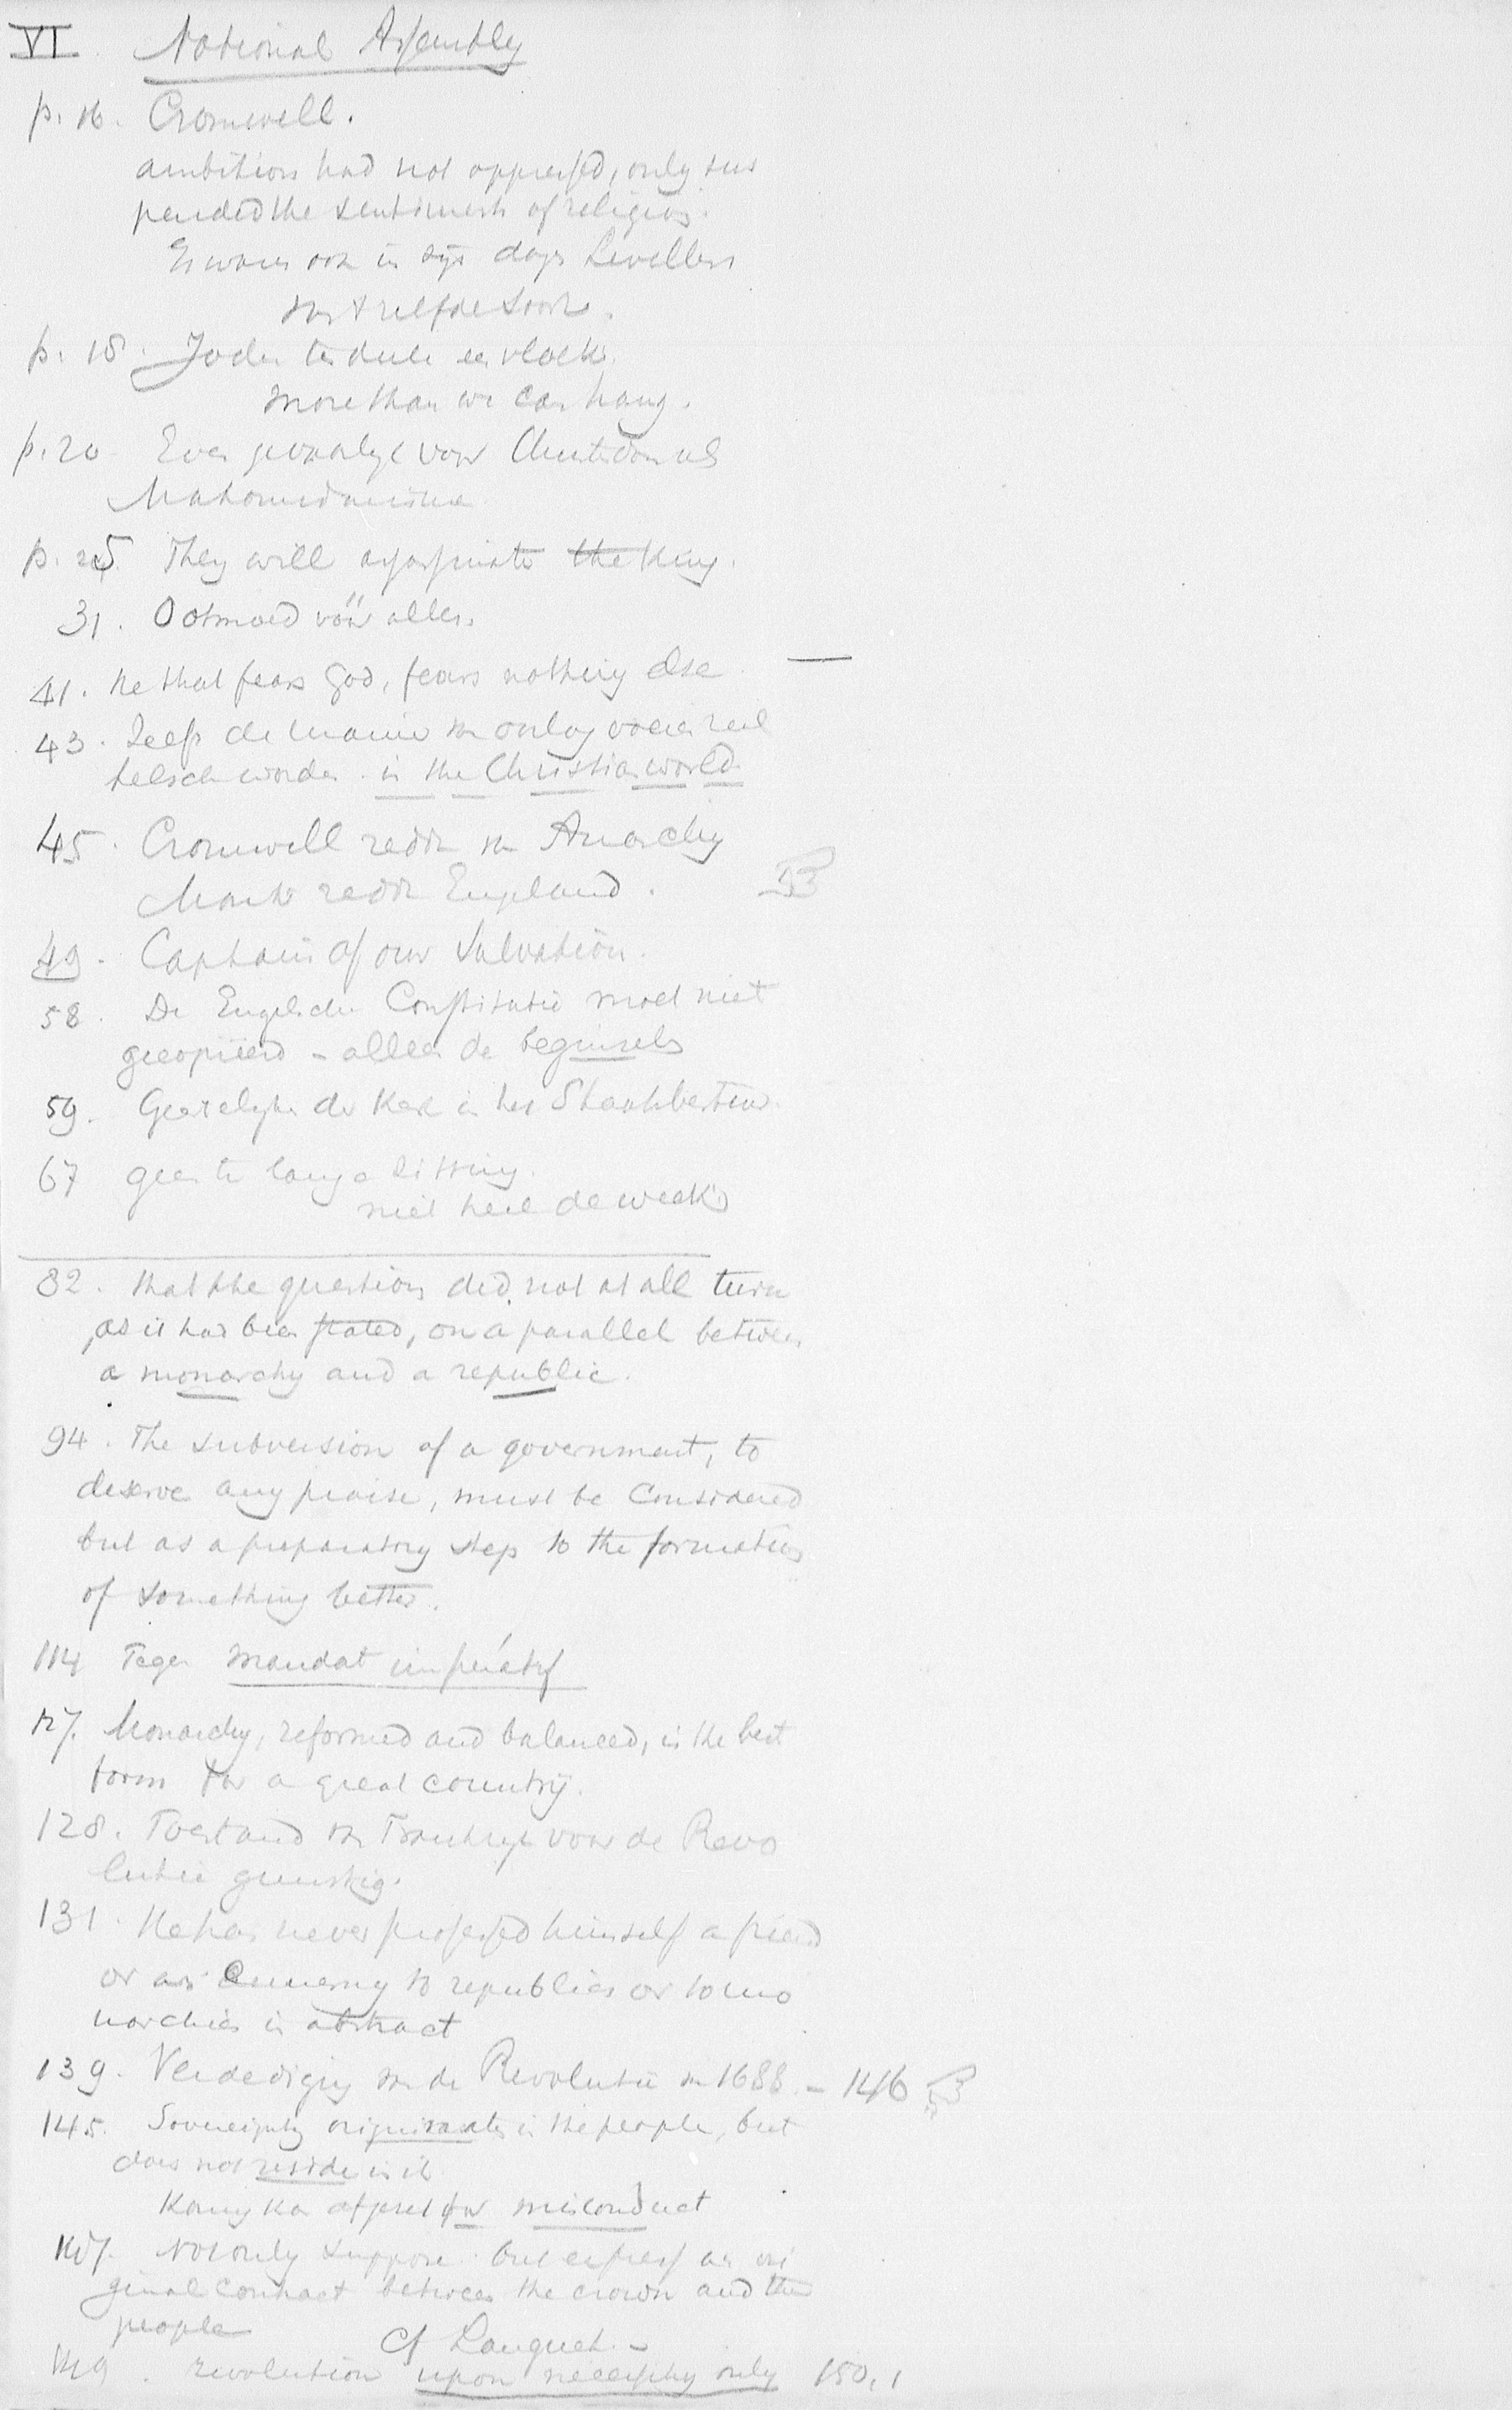 VI. National Assembly
p. 16. Cromwell.
ambition had not oppressed, only sus
pended the sentiments of religion.
Er waren ook in zijn dagen Levellers
van 't zelfde soort.
p. 18. Joden ten deele een vloek
more than we can hang.
p. 20. Even gevaarlijk voor Christendom als
Mahomedanisme
p. 25. They will assassinate the King.
31. Ootmoed vóór alles.
41. He that fears God, fears nothing else —
43. Zelfs de manier van oorlog voeren zal
helsch worden in the Christian world
45. Cromwell redde van Anarchy
Monk redde England.
49. Captain of our Salvation.
58. De Engelsche Constitutie moet niet
gecopieerd - alleen de beginsels
59. Geestelijken der Kerk in het Staatsbestuur
67 geen te lange zitting.
niet heel de week
82. that the question did not at all turn
as it had been stated, on a parallel between
a monarchy and a republic.
94. The subversion of a government, to
deserve any praise, must be considered
but as a preparatory step to the formation
of something better.
114 Tegen mandat impératif
127. Monarchy, reformed and balanced, is the best
form for a great country.
128. Toestand van Frankrijk voor de Revo
lutie gunstig.
131. He has never professed himself a friend
or an ennemy to republics or to mo
narchies in abstract
139. Verdediging van de Revolutie van 1688 - 146
145. Sovereignty originates in the people, but
does not reside in it.
Koning kan afgezet for misconduct
147. Not only suppose but express an ori
ginal contract between the crown and the
people
Cf Languet. -
149. revolution upon necessity only 150,1